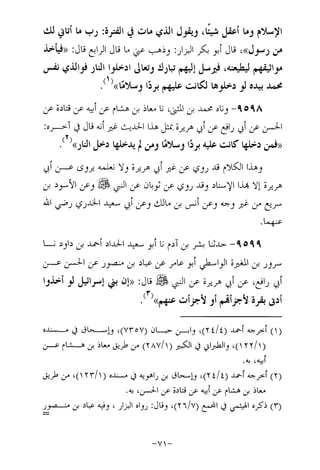 الإسلام وما أعقل شيئًا، ويقول الذي مات في الفترة: رب ما أتاني لك
من رسول»، قال أبو بكر البزار: وذهب عني ما قال الرابع قال: «فيأخذ
مواثيقهم ليطيعنه، فيرسل إليهم تبارك وتعالى ادخلوا النار فوالذي نفس
محمد بيده لو دخلوها لكانت عليهم بردًا وسلامًا»(١).
٩٥٩٨- وناه محمد بن المثنى، نا معاذ بن هشام عن أبيه عن قتادة عن
الحسن عن أبي رافع عن أبي هريرة بمثل هذا الحديث غير أنه قال في آخـــره:
«فمن دخلها كانت عليه بردًا وسلامًا ومن لم يدخلها دخل النار»(٢).
وهذا الكلام قد روي عن غير أبي هريرة ولا نعلمه يروى عـــن أبي
هريرة إلا بهذا الإسناد وقد روي عن ثوبان عن النبي ﷺ وعن الأسود بن
سريع من غير وجه وعن أنس بن مالك وعن أبي سعيد الخدري رضي الله
عنهما.
٩٥٩٩- حدثنا بشر بن آدم نا أبو سعيد الحداد أحمد بن داود نـــا
سرور بن المغيرة الواسطي أبو عامر عن عباد بن منصور عن الحسن عـــن
أبي رافع، عن أبي هريرة عن النبي ﷺ قال: «إن بني إسرائيل لو أخذوا
أدنى بقرة لأجزأتهم أو لأجزأت عنهم»(٣).
(١) أخرجه أحمد (٢٤/٤)، وابـــن حبـــان (٧٣٥٧)، وإســـحاق في مـــسنده
(١٢٢/١)، والطبراني في الكبير (٢٨٧/١) من طريق معاذ بن هـــشام عـــن
أبيه، به.
(٢) أخرجه أحمد (٢٤/٤)، وإسحاق بن راهويه في مسنده (١٢٣/١)، من طريق
معاذ بن هشام عن أبيه عن قتادة عن الحسن، به.
(٣) ذكره الهيثمي في المجمع (٢٦/٧)، وقال: رواه البزار ، وفيه عباد بن منـــصور
=
-٧١-